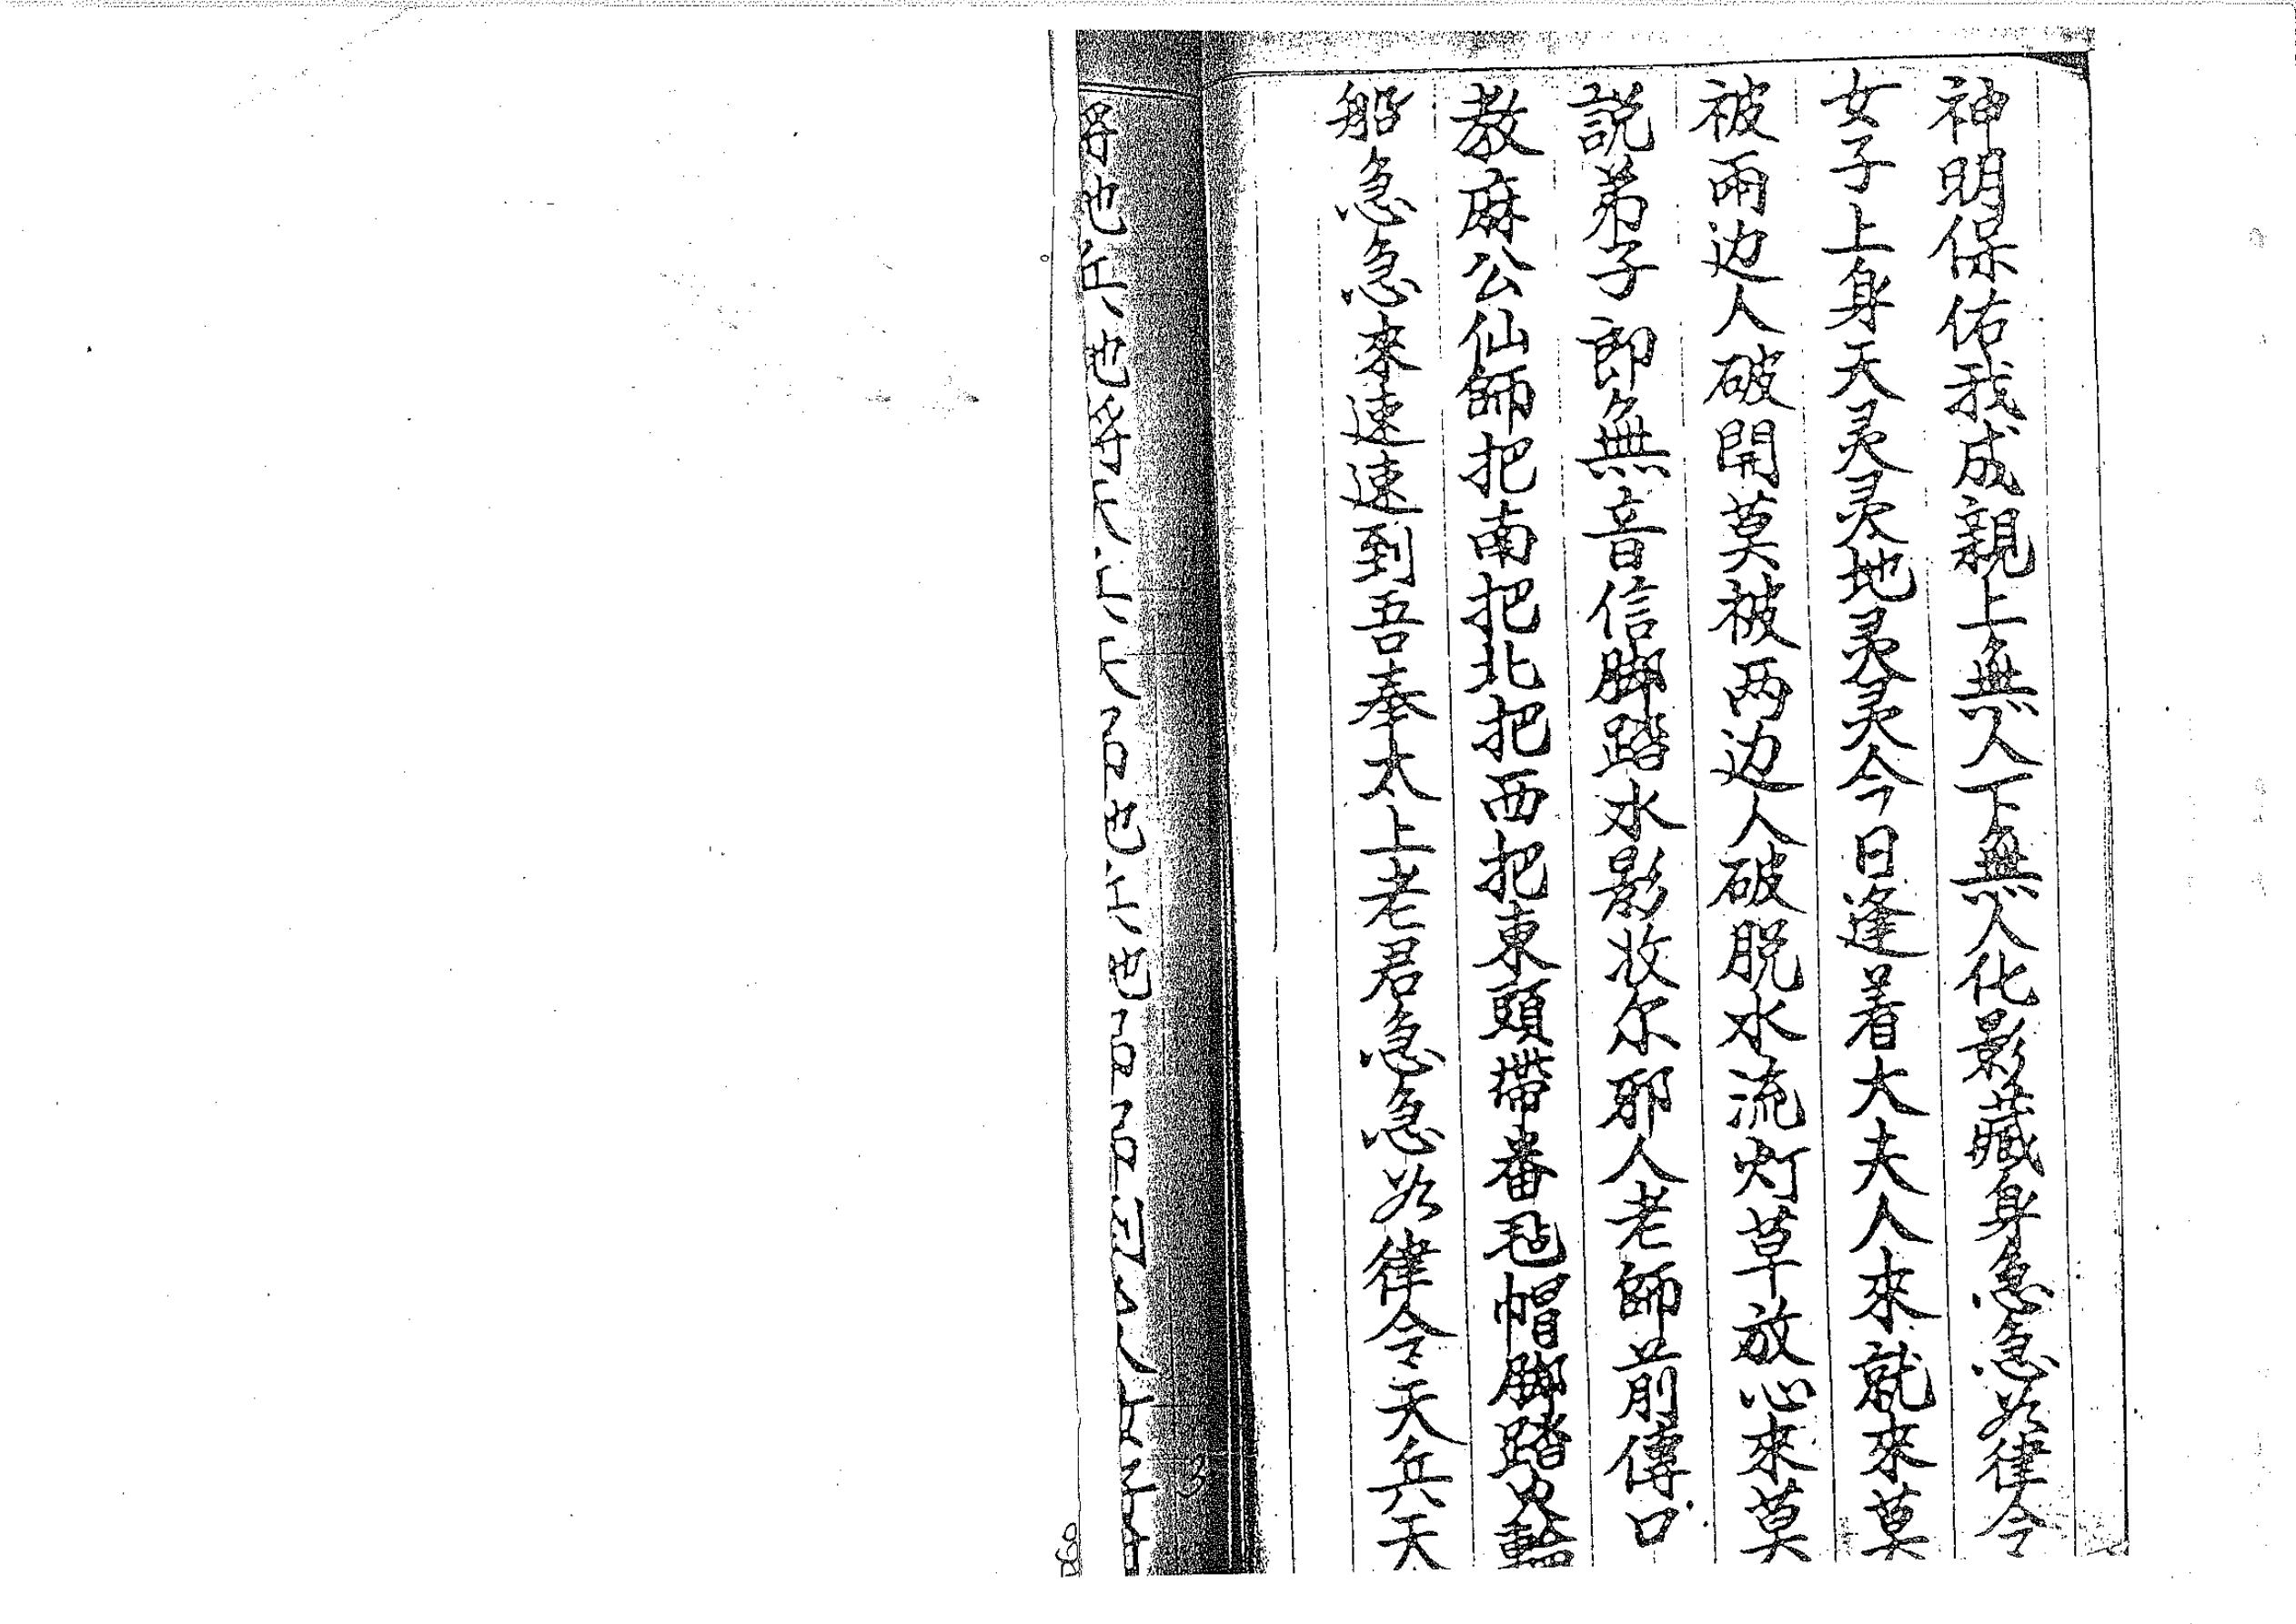 神明保佑我成親上無人下無人化影藏身急急如律令
女子上身天灵灵地灵灵今日逢着大夫人來就來莫
被雨边人破開莫被两边人破脱水流灯草放心來莫
説弟子郎無音信脚踏水影妆尔耶人老師前傳口
教麻公仙師把南把北把西把東頭帶番毡帽脚踏火輪
船急急來速速到吾奉太上老君急急如律令天兵天
3